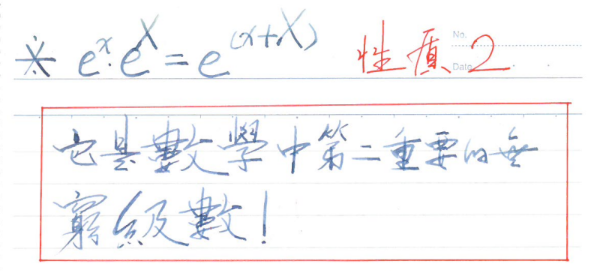 ※ e^x·e^X = e^(x+X) 性質2
No.
Date
它是數學中第二重要的無
窮級數！